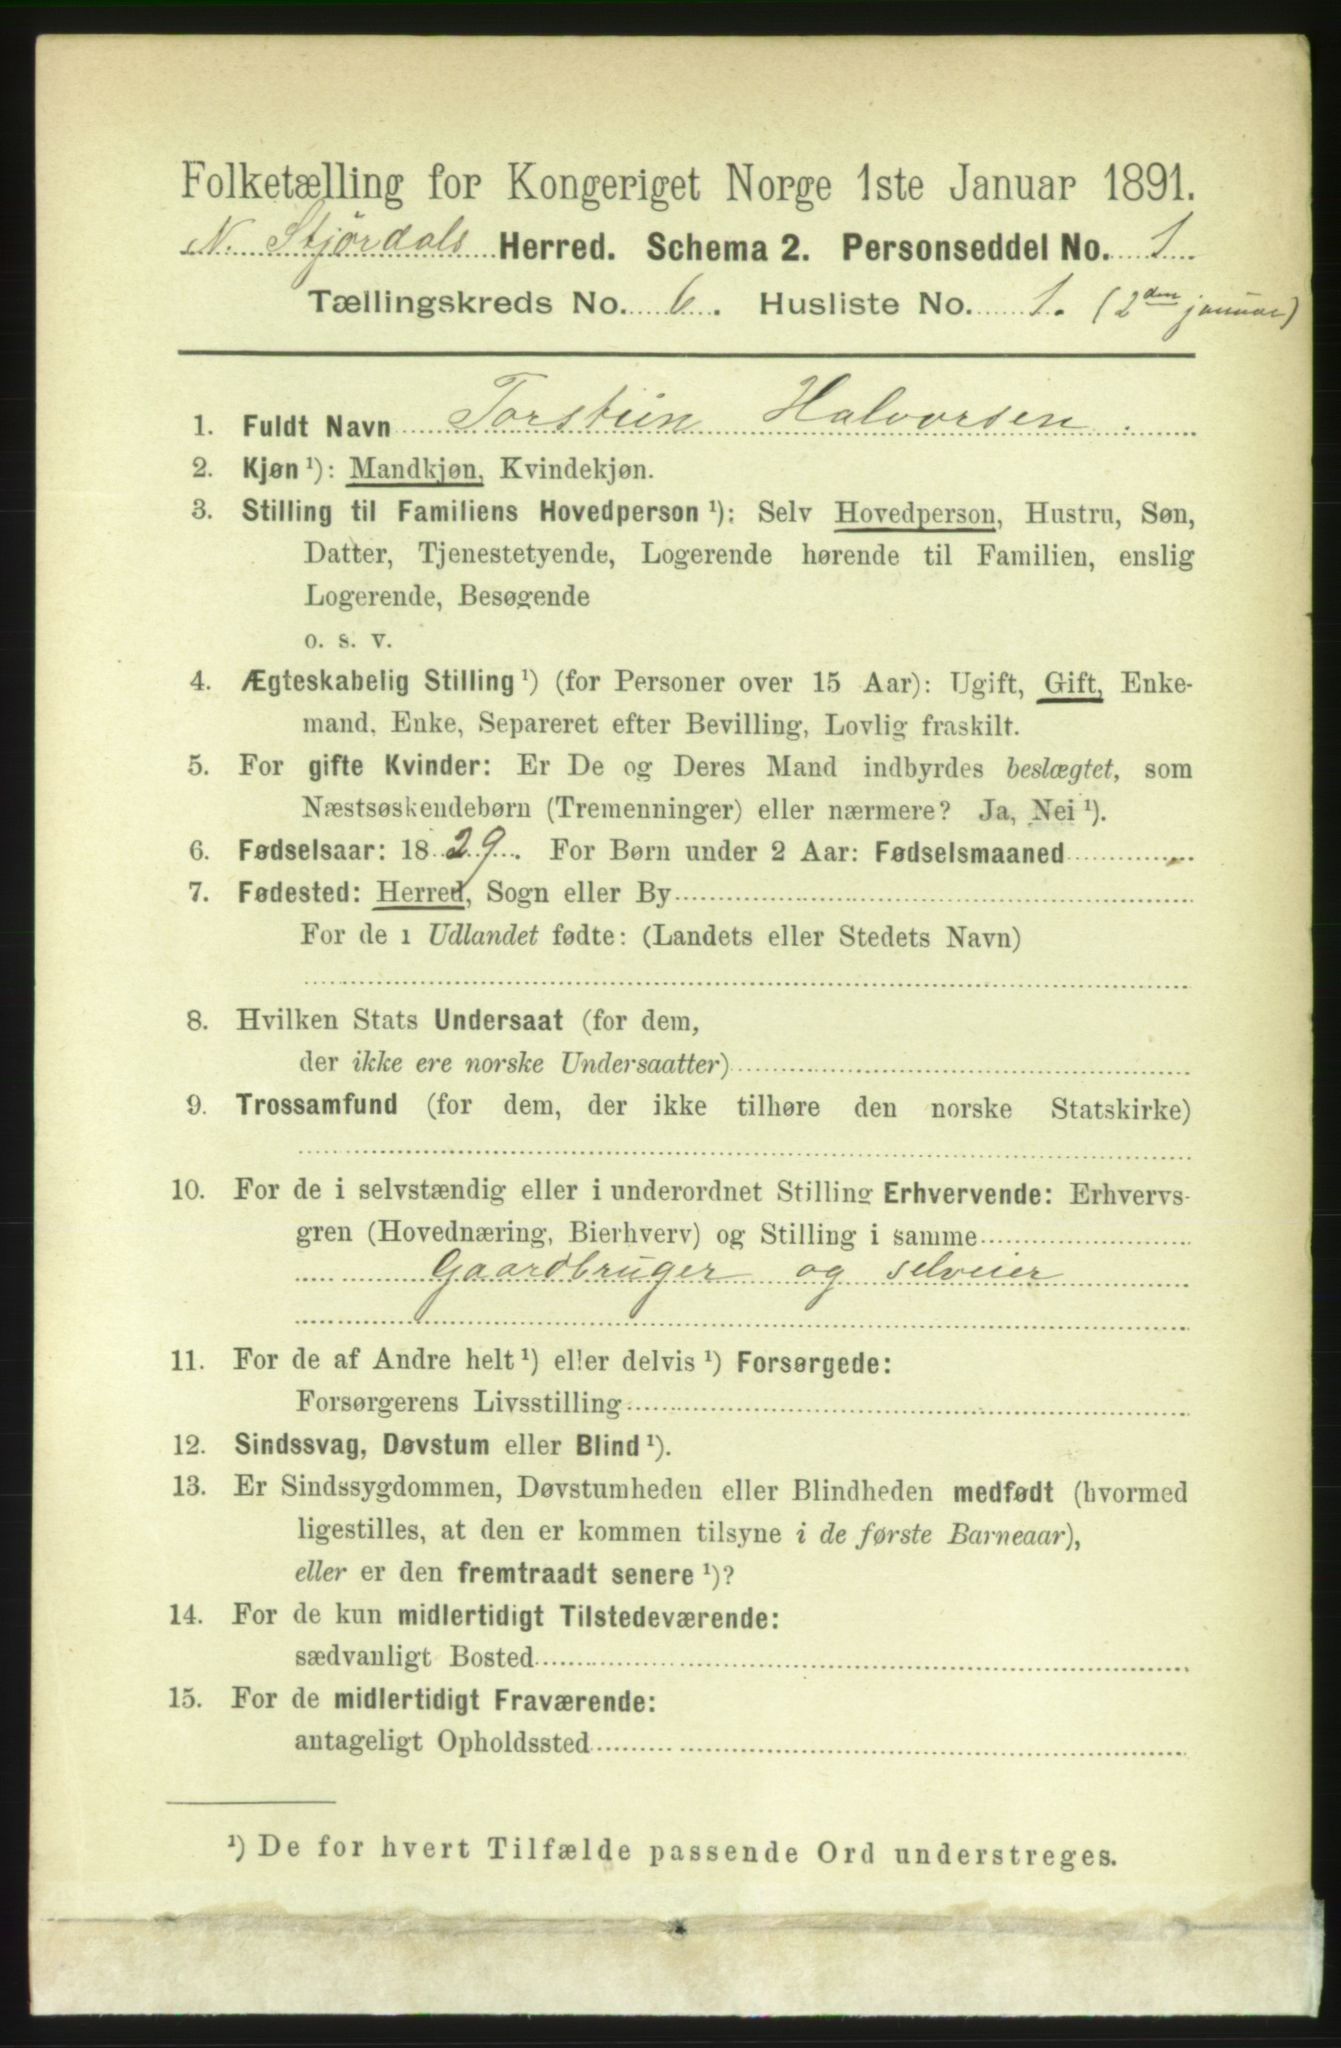 Folketælling for Kongeriget Norge 1ste Januar 1891.
N. Stjørdals Herred. Schema 2. Personseddel No. 1
Tællingskreds No. 6. Husliste No. 1. (2den januar)
1. Fuldt Navn Torstein Halvorsen.
2. Kjøn ¹): Mandkjøn, Kvindekjøn.
3. Stilling til Familiens Hovedperson ¹): Selv Hovedperson, Hustru, Søn,
Datter, Tjenestetyende, Logerende hørende til Familien, enslig
Logerende, Besøgende
o. s. v.
4. Ægteskabelig Stilling ¹) (for Personer over 15 Aar): Ugift, Gift, Enke-
mand, Enke, Separeret efter Bevilling, Lovlig fraskilt.
5. For gifte Kvinder: Er De og Deres Mand indbyrdes beslægtet, som
Næstsøskendebørn (Tremenninger) eller nærmere? Ja, Nei ¹).
6. Fødselsaar: 1829. For Børn under 2 Aar: Fødselsmaaned
7. Fødested: Herred, Sogn eller By
For de i Udlandet fødte: (Landets eller Stedets Navn)
8. Hvilken Stats Undersaat (for dem,
der ikke ere norske Undersaatter)
9. Trossamfund (for dem, der ikke tilhøre den norske Statskirke)
10. For de i selvstændig eller i underordnet Stilling Erhvervende: Erhvervs-
gren (Hovednæring, Bierhverv) og Stilling i samme
Gaardbruger og selveier
11. For de af Andre helt ¹) eller delvis ¹) Forsørgede:
Forsørgerens Livsstilling
12. Sindssvag, Døvstum eller Blind ¹).
13. Er Sindssygdommen, Døvstumheden eller Blindheden medfødt (hvormed
ligestilles, at den er kommen tilsyne i de første Barneaar),
eller er den fremtraadt senere ¹)?
14. For de kun midlertidigt Tilstedeværende:
sædvanligt Bosted
15. For de midlertidigt Fraværende:
antageligt Opholdssted
¹) De for hvert Tilfælde passende Ord understreges.